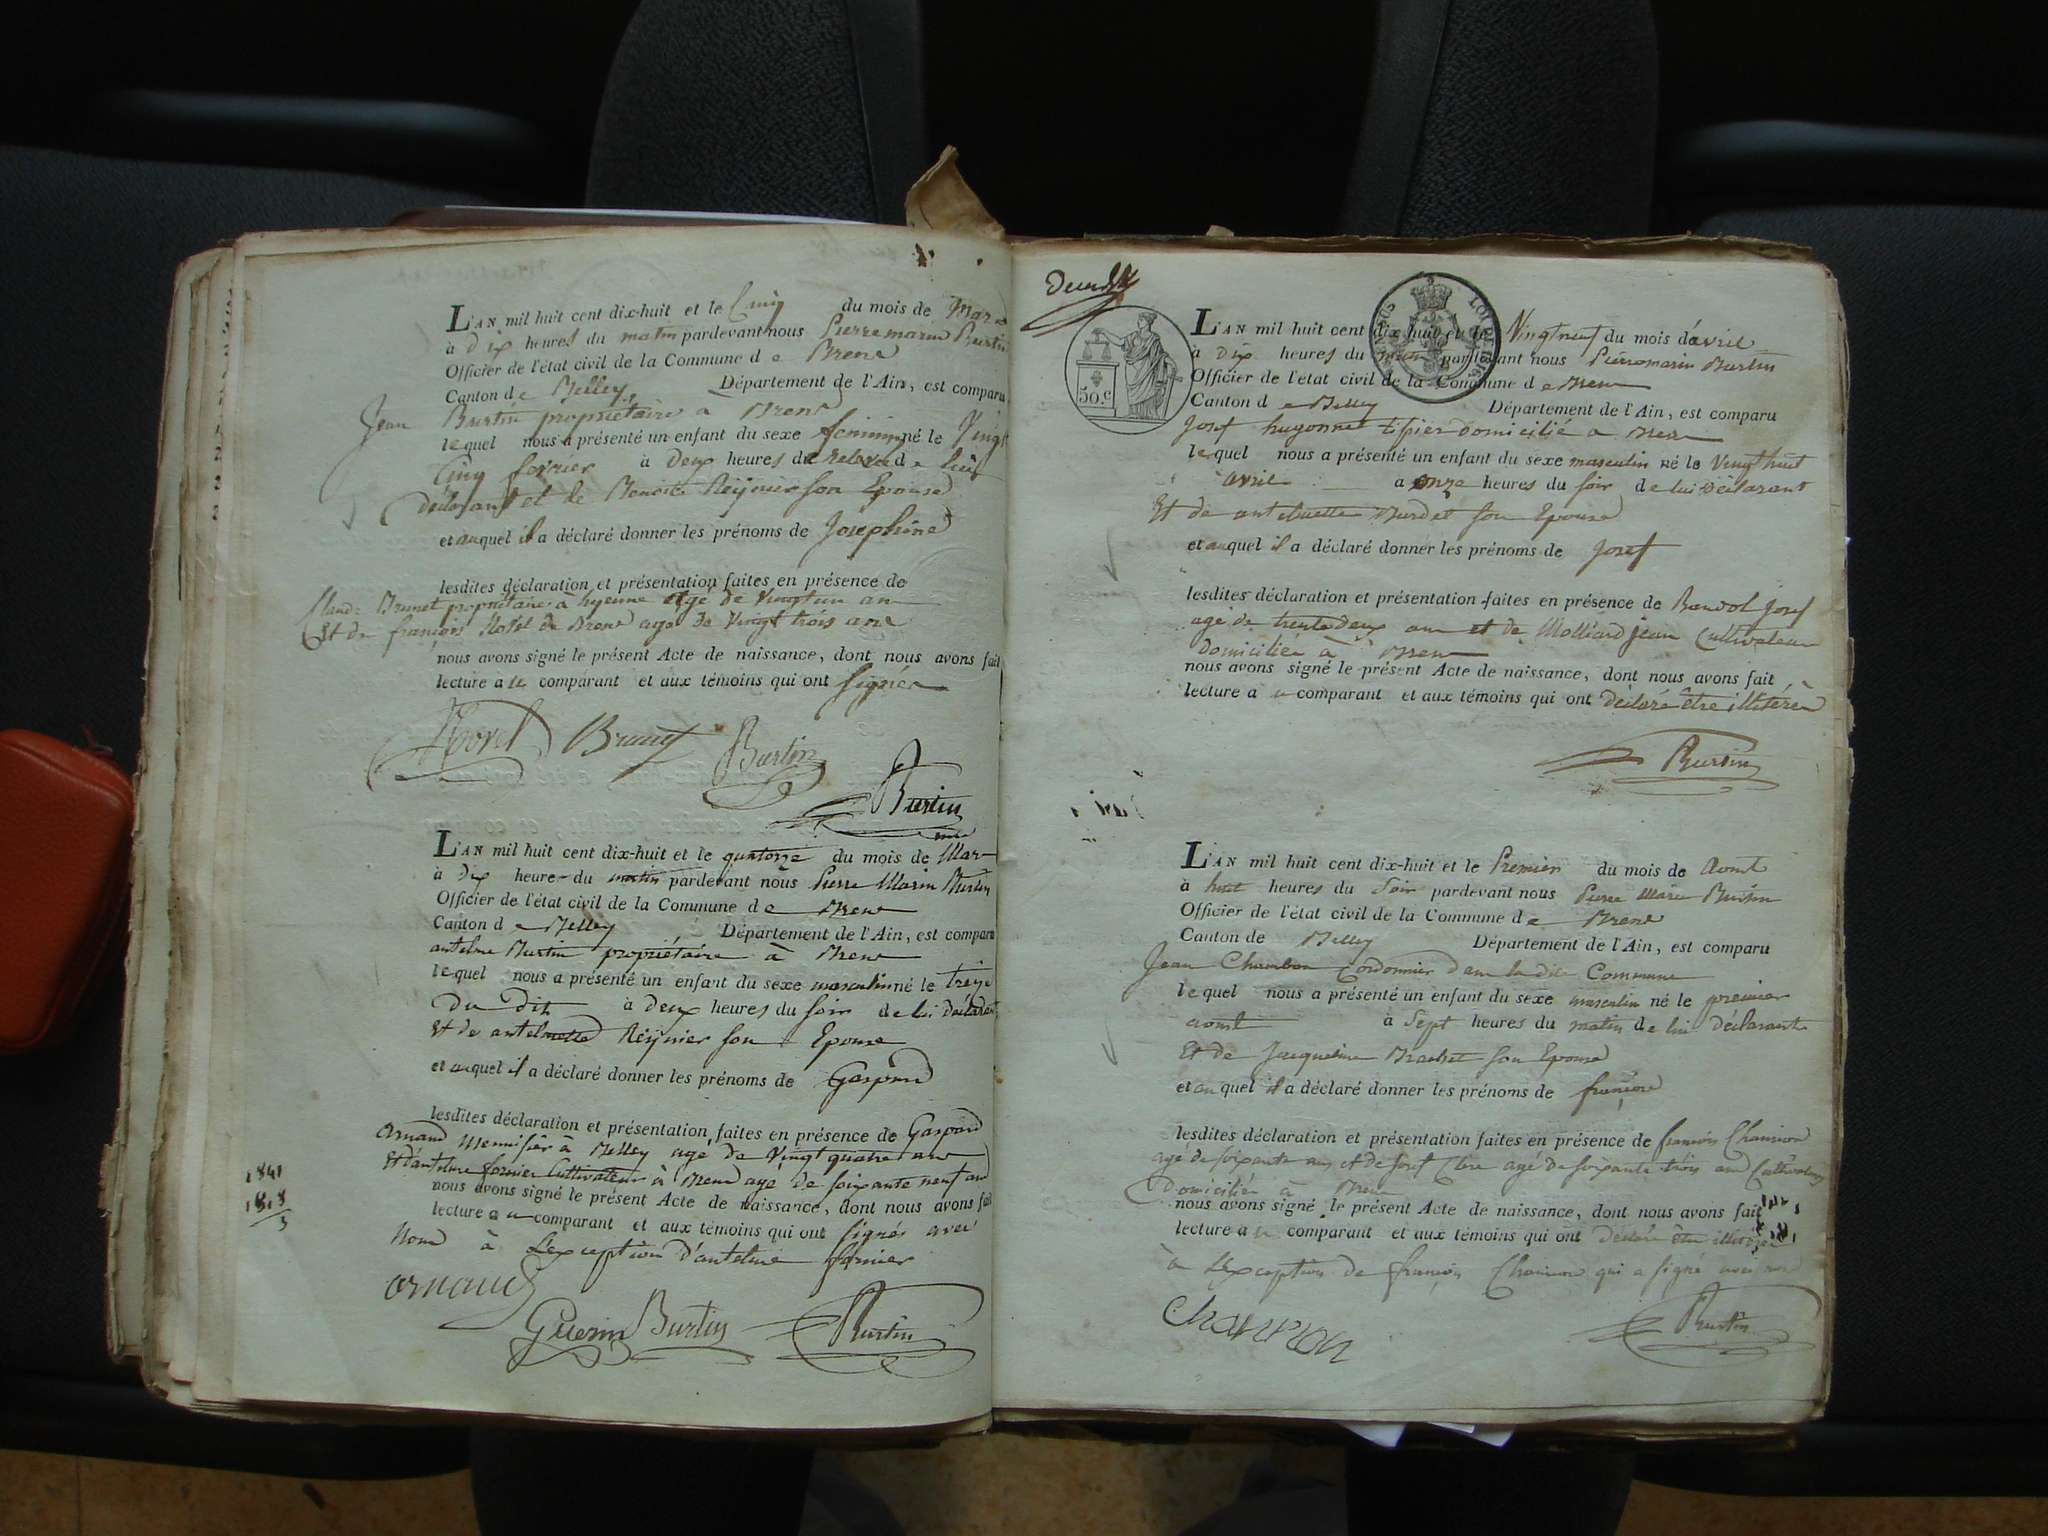 L'AN mil huit cent dix-huit et le Cinq du mois de Mars
à dix heures du matin pardevant nous Pierre marin Burtin
Officier de l'état civil de la Commune de Brens
Canton de Belley Département de l'Ain, est comparu
Jean Burtin propriétaire a Brens
lequel nous a présenté un enfant du sexe feminin né le Vingt
Cinq fevrier à deux heures du de lui
déclarant et de Benoite Reijnier son Epouse
et auquel il a déclaré donner les prénoms de Josephine
lesdites déclaration et présentation faites en présence de
Claude Brunet propriétaire à hyenne agé de Vingt un an
Et de françois Hovel de Brens agé de Vingt trois ans
nous avons signé le présent Acte de naissance, dont nous avons fait
lecture a u comparant et aux témoins qui ont signés
Hovel Brunet
Burtin
Burtin
L'AN mil huit cent dix-huit et le quatorze du mois de Mars
à dix heure du matin pardevant nous Pierre Marin Burtin
Officier de l'état civil de la Commune de Brens
Canton de Belley Département de l'Ain, est comparu
antelme Burtin propriétaire à Brens
lequel nous a présenté un enfant du sexe masculin né le treize
Du dit à deux heures du soir de lui déclarant
Et de antelmette Reijnier son Epouse
et auquel il a déclaré donner les prénoms de Gaspard
lesdites déclaration et présentation faites en présence de Gaspard
arnaud Menuisier à Belley agé de Vingt quatre ans
Et d'antelme fornier Cultivateur à Brens agé de soixante neuf ans
nous avons signé le présent Acte de naissance, dont nous avons fait
1841
1818
3
lecture a u comparant et aux témoins qui ont signés avec
Nous à L'exception d'antelme fornier
arnaud
Guerin Burtin Burtin
50.c
L'AN mil huit cent dix-huit et le Vingt neuf du mois d'avril
à dix heures du matin pardevant nous Pierre marin Burtin
Officier de l'état civil de la Commune de Brens
Canton de Belley Département de l'Ain, est comparu
Josef hugonnet tissier domicilié a Brens
lequel nous a présenté un enfant du sexe masculin né le Vingt huit
avril a onze heures du soir de lui Déclarant
Et de antelmette Burdet son Epouse
et auquel il a déclaré donner les prénoms de Josef
lesdites déclaration et présentation faites en présence de Josef
agé de trente deux ans et de Molliard jean Cultivateur
domicilié à Brens
nous avons signé le présent Acte de naissance, dont nous avons fait
lecture a u comparant et aux témoins qui ont Déclaré être illitéré
Burtin
L'AN mil huit cent dix-huit et le Premier du mois de Aout
à huit heures du Soir pardevant nous Pierre Marin Burtin
Officier de l'état civil de la Commune de Brens
Canton de Belley Département de l'Ain, est comparu
Jean Chambon Cordonnier dans la dite Commune
lequel nous a présenté un enfant du sexe masculin né le premier
aout à Sept heures du matin de lui déclarant
Et de Jacqueline son Epouse
et au quel il a déclaré donner les prénoms de françois
lesdites déclaration et présentation faites en présence de françois Champion
agé de soixante ans et de Josef agé de soixante trois ans Cultivateurs
Domicilié à Brens
nous avons signé le présent Acte de naissance, dont nous avons fait
lecture a u comparant et aux témoins qui ont déclaré être
à L'exception de françois Champion qui a signé avec nous
Champion Burtin